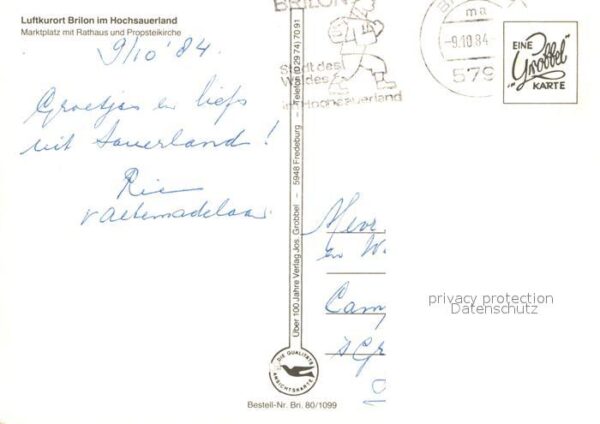 Luftkurort Brilon im Hochsauerland
Marktplatz mit Rathaus und Propsteikirche
9/10 '84
Groetjes en liefs
uit Sauerland!
Rie
v Altemadelaar
Über 100 Jahre Verlag Jos. Grobbel — 5948 Fredeburg — Telefon (0 29 74) 70 91
DIE QUALITÄTS
ANSICHTSKARTE
Bestell-Nr. Bri. 80/1099
BRILON
Stadt des
Waldes
im Hochsauerland
ma
-9.10.84-
579
EINE
"Grobbel"
KARTE
Mevr
en
Cam
privacy protection
Datenschutz